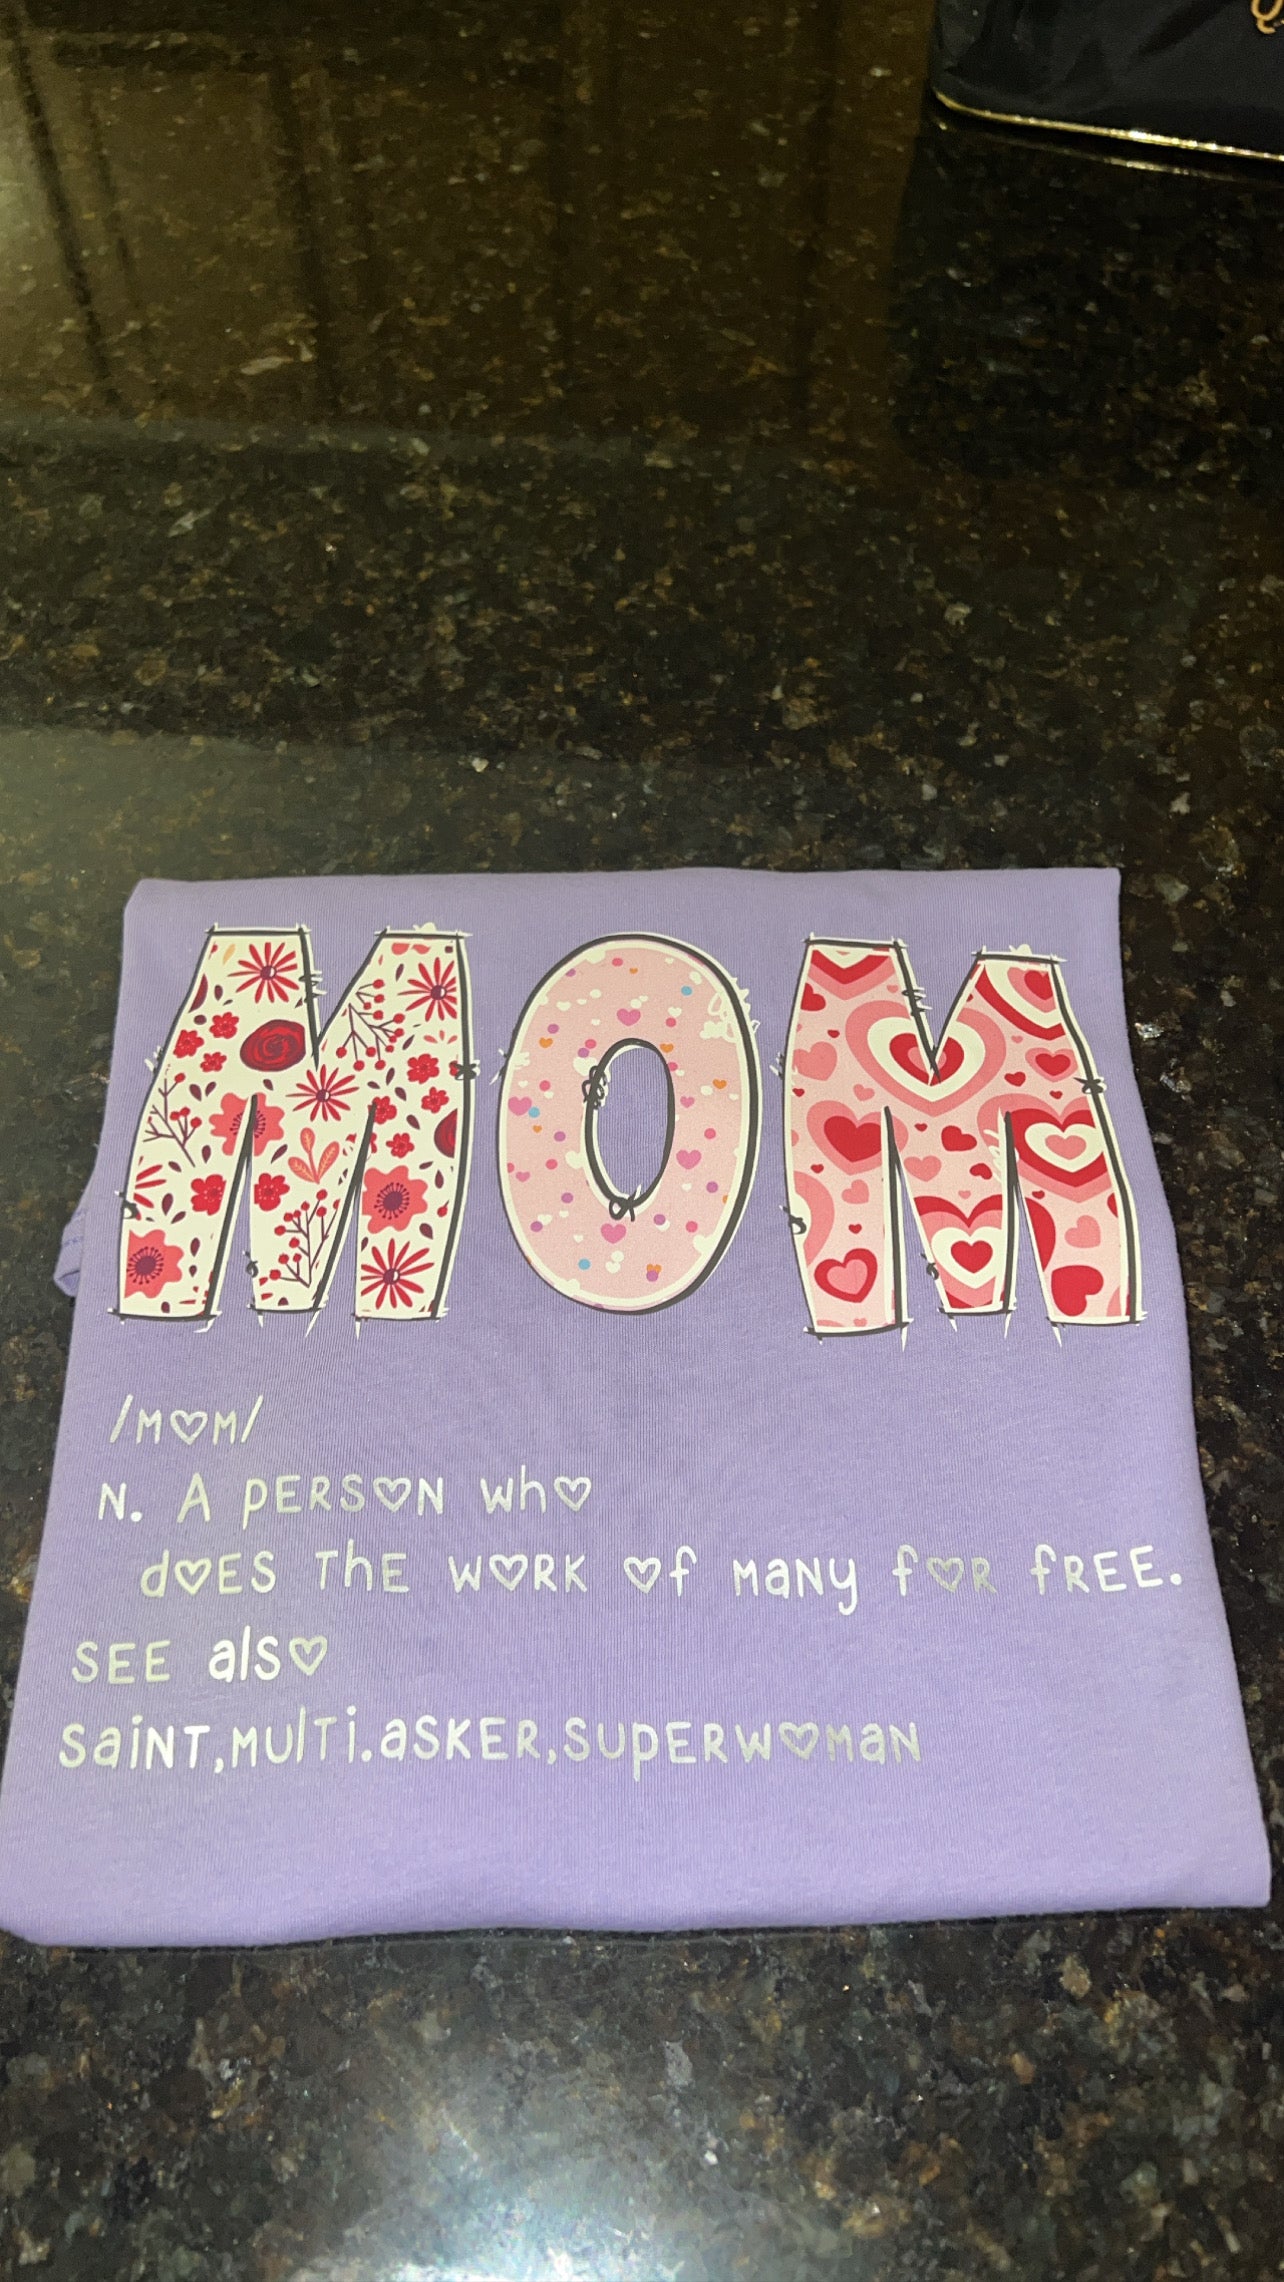 MOM
/MOM/
N. A PERSON who
dOES ThE WORK Of MaNy fOR fREE.
SEE alsO
SaiNT,MUlTi.aSKER,SUpERWOMaN